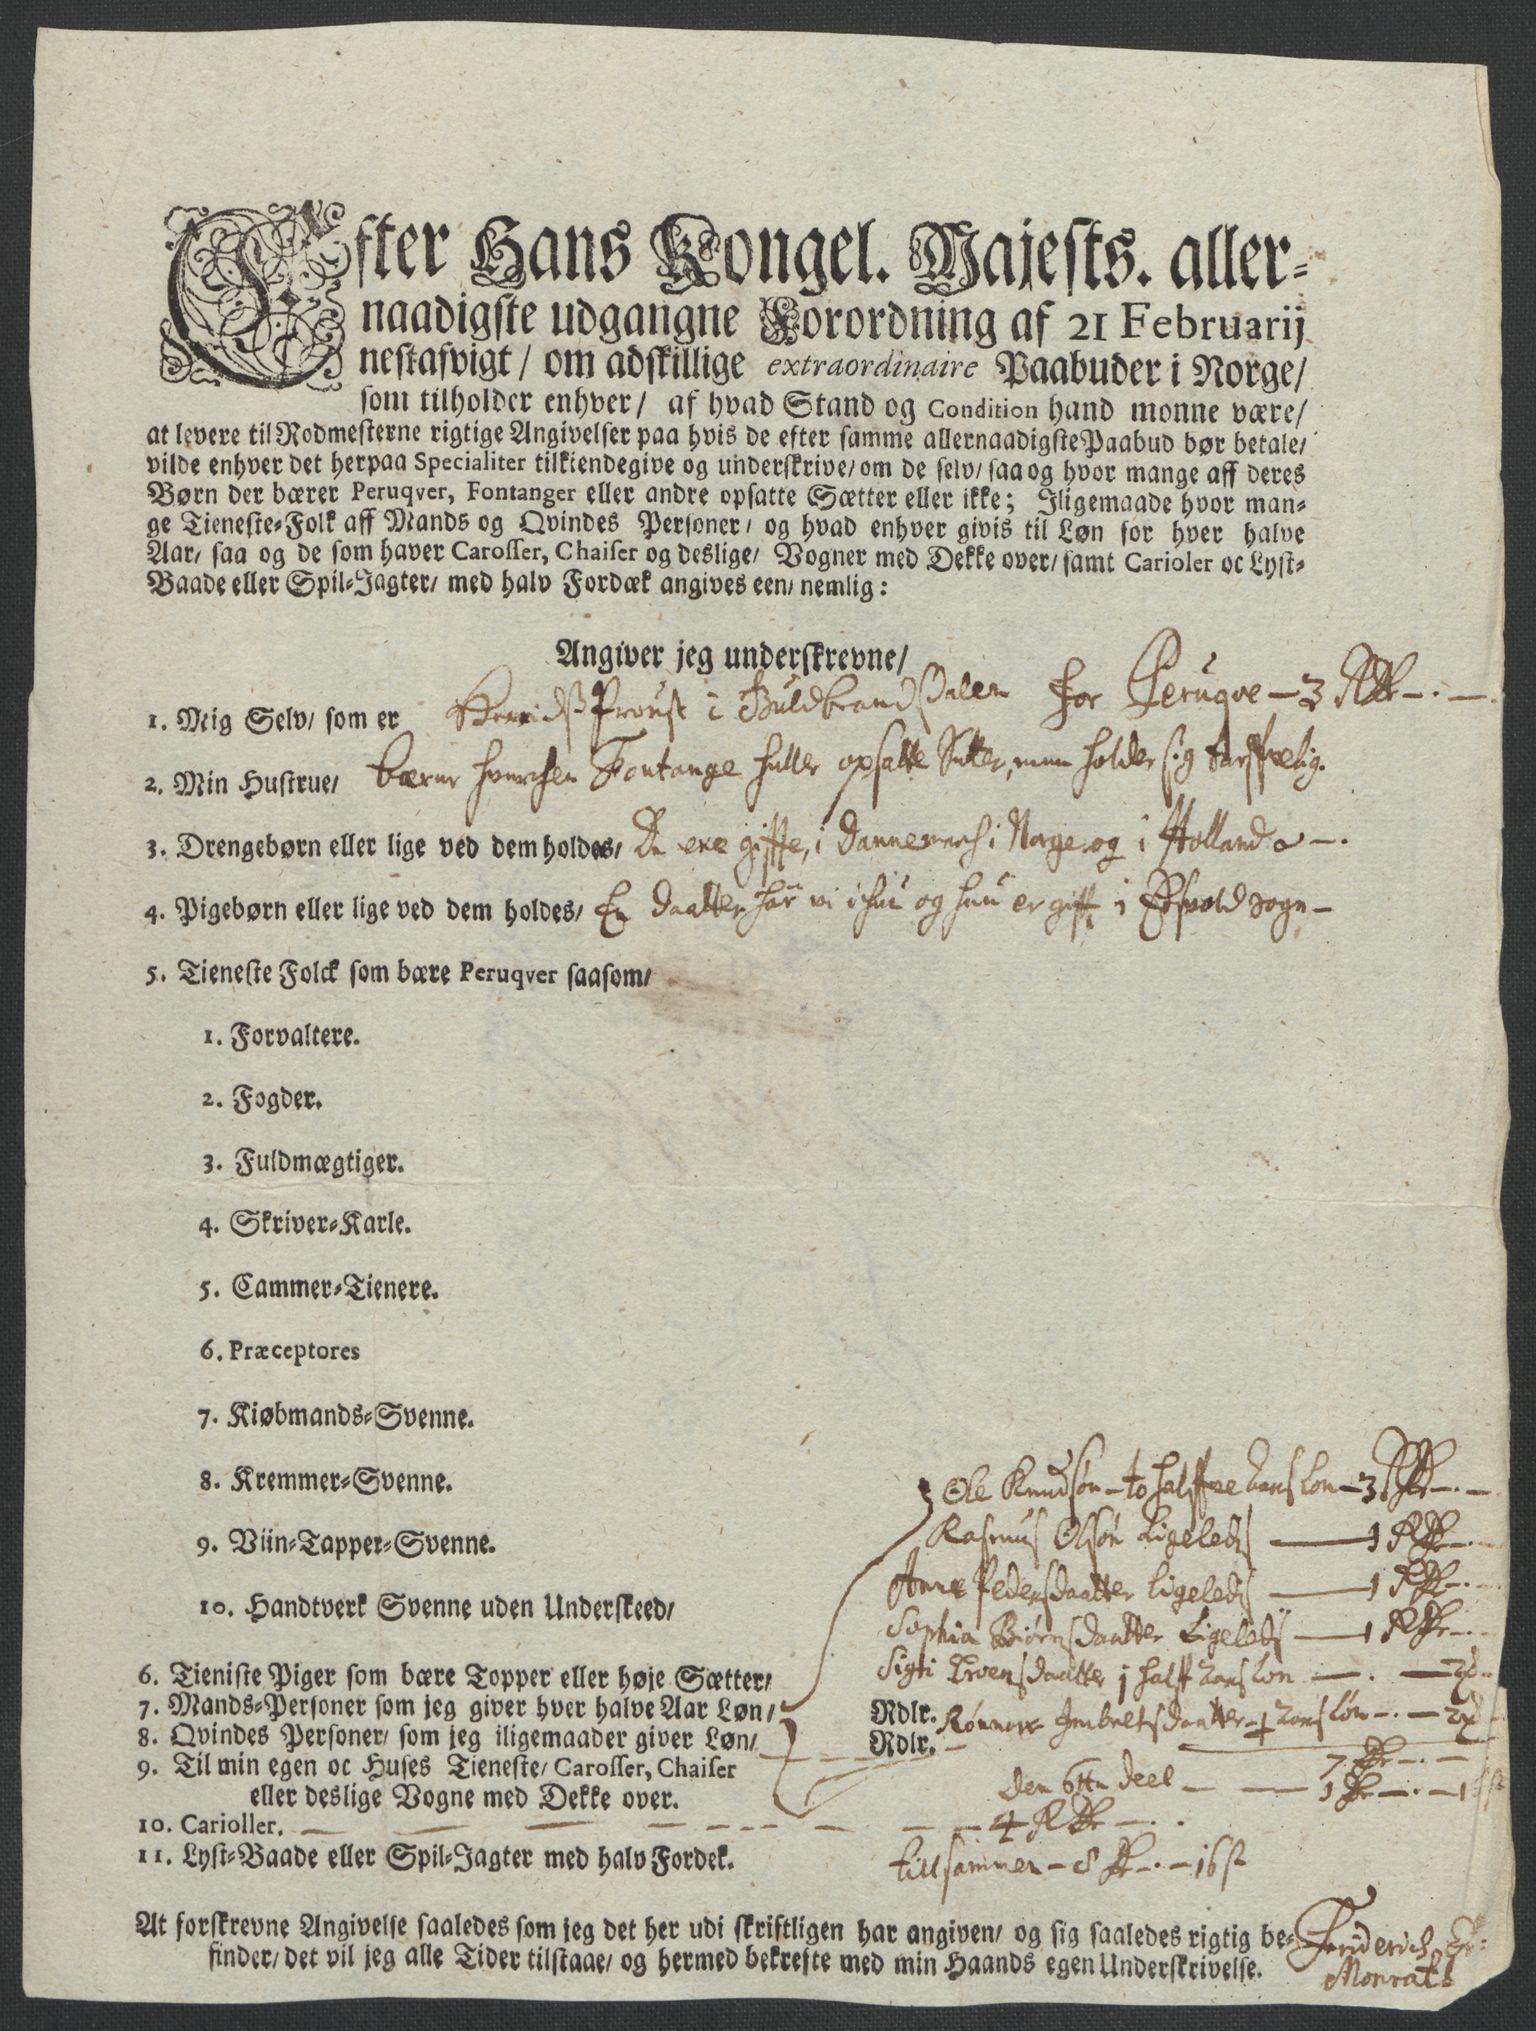 Efter Hans Kongel. Majests. aller-
naadigste udgangne Forordning af 21 Februarij
nestafvigt / om adskillige extraordinaire Paabuder i Norge/
som tilholder enhver/ af hvad Stand og Condition hand monne være/
at levere til Rodmesterne rigtige Angivelser paa hvis de efter samme allernaadigste Paabud bør betale/
vilde enhver det herpaa Specialiter tilkiendegive og underskrive/ om de selv/ saa og hvor mange aff deres
Børn der bærer Peruqver, Fontanger eller andre opsatte Sætter eller ikke; Iligemaade hvor man-
ge Tieneste-Folk aff Mands og Qvindes Personer/ og hvad enhver givis til Løn for hver halve
Aar/ saa og de som haver Carosser, Chaiser og deslige/ Vogner med Dekke over/ samt Carioler oc Lyst-
Baade eller Spil-Jagter/ med halv Fordæk angives een/ nemlig:
Angiver jeg underskrevne/
1. Mig Selv/ som er Proust i Guldbrandsdalen for Peruqve - 3 Rdr - . -
2. Min Hustrue/ bærer hverchen Fontange heller opsatte Setter, men holder sig
3. Drengebørn eller lige ved dem holdes/ De ere giffte, i Dannemarch i Norge og i Holland -.
4. Pigebørn eller lige ved dem holdes/ En daatter har vi og hun er gifft i Sogn -
5. Tieneste Folck som bære Peruqver saasom/
1. Forvaltere.
2. Fogder.
3. Fuldmægtiger.
4. Skriver-Karle.
5. Cammer-Tienere.
6. Præceptores
7. Kiøbmands-Svenne.
8. Kremmer-Svenne.
9. Viin-Tapper-Svenne.
10. Handtverk Svenne uden Underskeed/
Ole Knudsøn - to halffve Aars løn - 3 Rdr - . -
Rasmus Olsøn Ligeledis - 1 Rdr - . -
Anne Pedersdaatter ligeledis - 1 Rdr - . -
Sophia Biørnsdaatter Ligeledis - 1 Rdr - . -
Sigri daatter j halff Aars løn - . -
6. Tieniste Piger som bære Topper eller høje Sætter/
7. Mands-Personer som jeg giver hver halve Aar Løn/ Rdlr.
8. Qvindes Personer/ som jeg iligemaader giver Løn/ Rdlr.
9. Til min egen oc Huses Tieneste/ Carosser, Chaiser
eller deslige Vogne med Dekke over.
7 Rdr - . -
den 6te deel - 1 Rdr - . - 16
10. Carioller. - 4 Rdr - .
11. Lyst-Baade eller Spil-Jagter med halv Fordek.
tillsammen - 8 Rdr - . - 16 s
At forskrevne Angivelse saaledes som jeg det her udi skriftligen har angiven/ og sig saaledes rigtig be-
finder/ det vil jeg alle Tider tilstaae/ og hermed bekrefte med min Haands egen Underskrivelse.
Friderich
Monrat